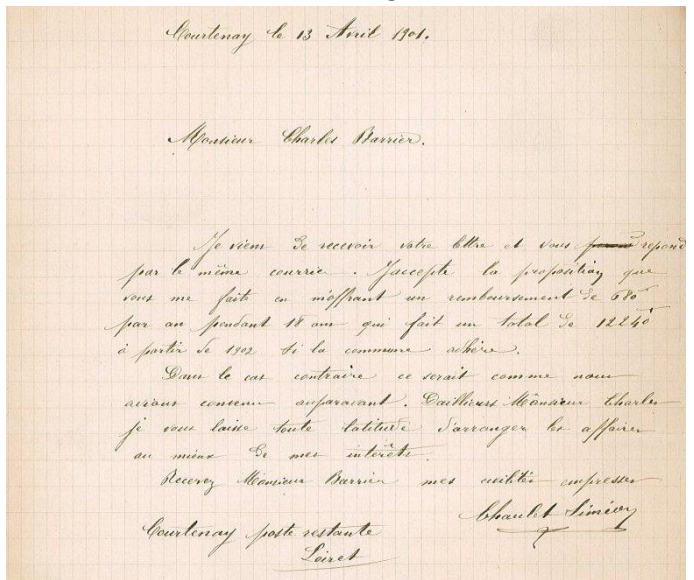 Courtenay le 13 Avril 1901.
Monsieur Charles Barrier.
Je viens de recevoir votre lettre et vous repond
par le même courrie. J'accepte la proposition que
vous me faite en m'offrant un remboursement de 680
par an pendant 18 ans qui fait un total de 12240
à partir de 1902 si la commune adhère.
Dans le cas contraire ce serait comme nous
avions convenu auparavant. Dailleurs Monsieur Charles
je vous laisse toute latitude d'arranger les affaires
au mieux de mes intérêts.
Recevez Monsieur Barrier mes civilités empresser
Chaulet Siméon
Courtenay poste restante
Loiret